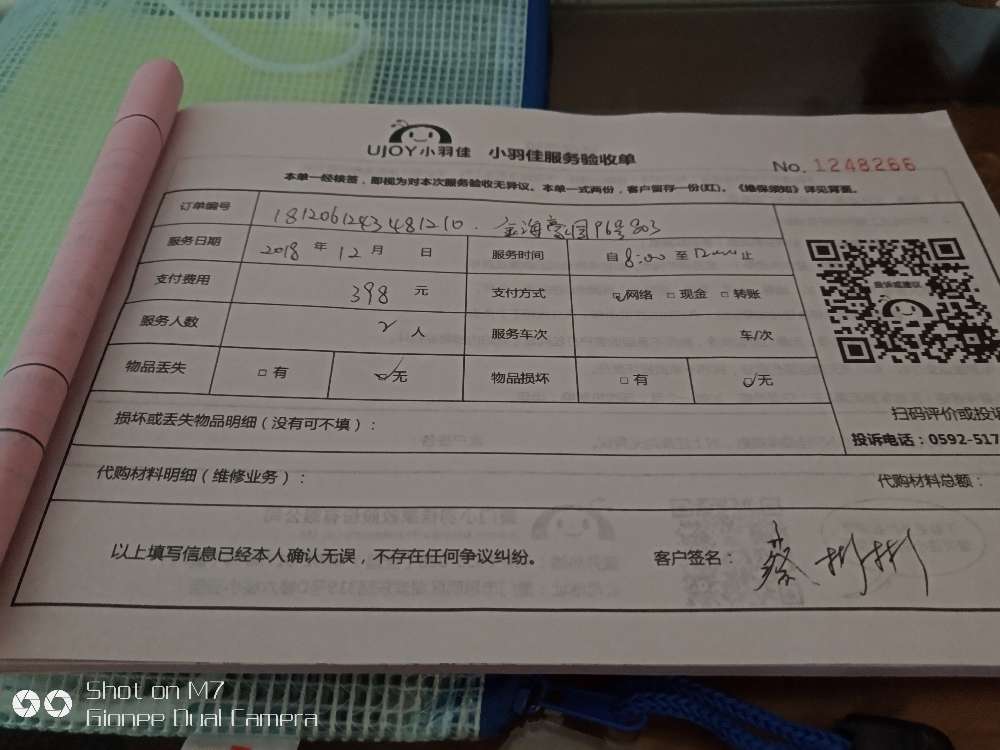 UJOY小羽佳 小羽佳服务验收单
No. 1248266
本单一经核签，即视为对本次服务验收无异议。本单一式两份，客户留存一份(红)。《维保须知》详见背面。
订单编号 1812061243481210.金海豪园96号803
服务日期 2018 年 12 月 日 服务时间 自 8:00 至 12 止
支付费用 398 元 支付方式 网络 现金 转账
服务人数 2 人 服务车次 车/次
物品丢失 有 无 物品损坏 有 无
投诉或建议
扫码评价或投诉
投诉电话：0592-517
损坏或丢失物品明细（没有可不填）：
代购材料明细（维修业务）： 代购材料总额：
以上填写信息已经本人确认无误，不存在任何争议纠纷。 客户签名：蔡彬彬
Shot on M7
Gionee Dual Camera